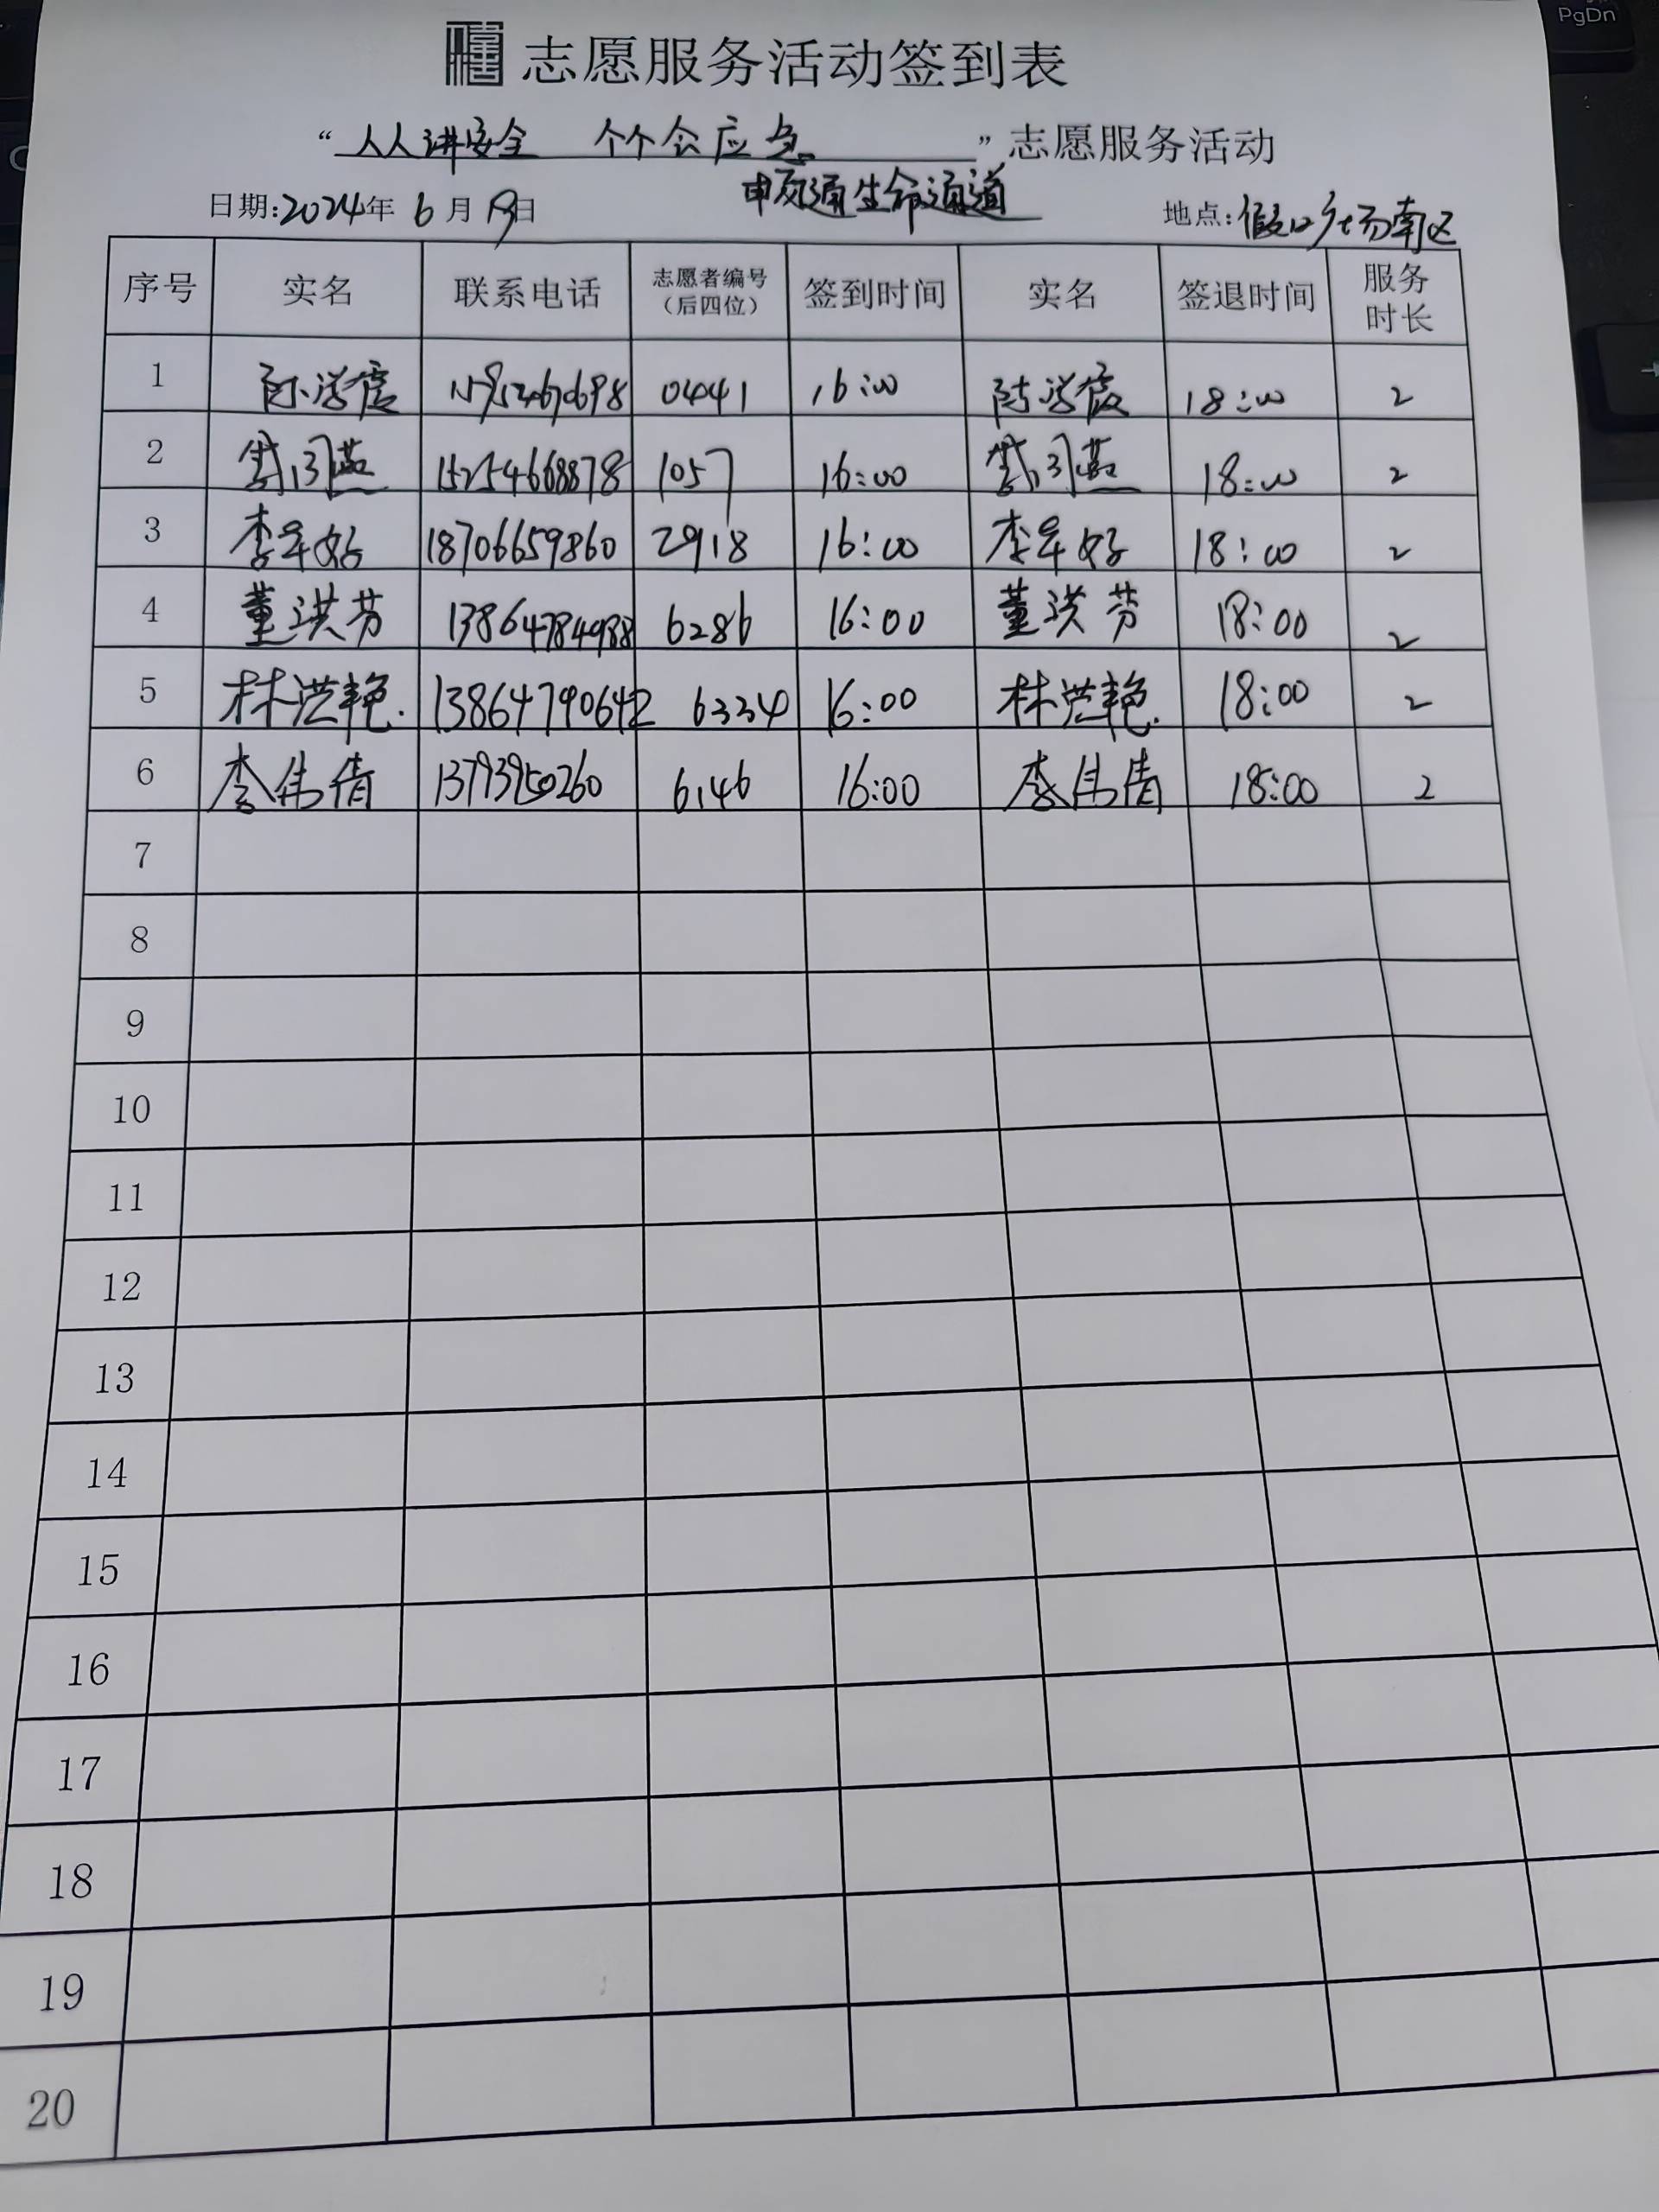 志愿服务活动签到表
“人人讲安全 个个会应急”志愿服务活动
畅通生命通道
日期:2024年6月19日 地点:假日广场南区
序号 实名 联系电话 志愿者编号(后四位) 签到时间 实名 签退时间 服务时长
1 陈学霞 0441 16:00 陈学霞 18:00 2
2 15254668878 1057 16:00 18:00 2
3 李 好 18706659860 2918 16:00 李 好 18:00 2
4 董洪芬 13864784988 6286 16:00 董洪芬 18:00 2
5 林洪艳 13864790642 6334 16:00 林洪艳 18:00 2
6 李伟倩 13793950260 6146 16:00 李伟倩 18:00 2
7
8
9
10
11
12
13
14
15
16
17
18
19
20
PgDn